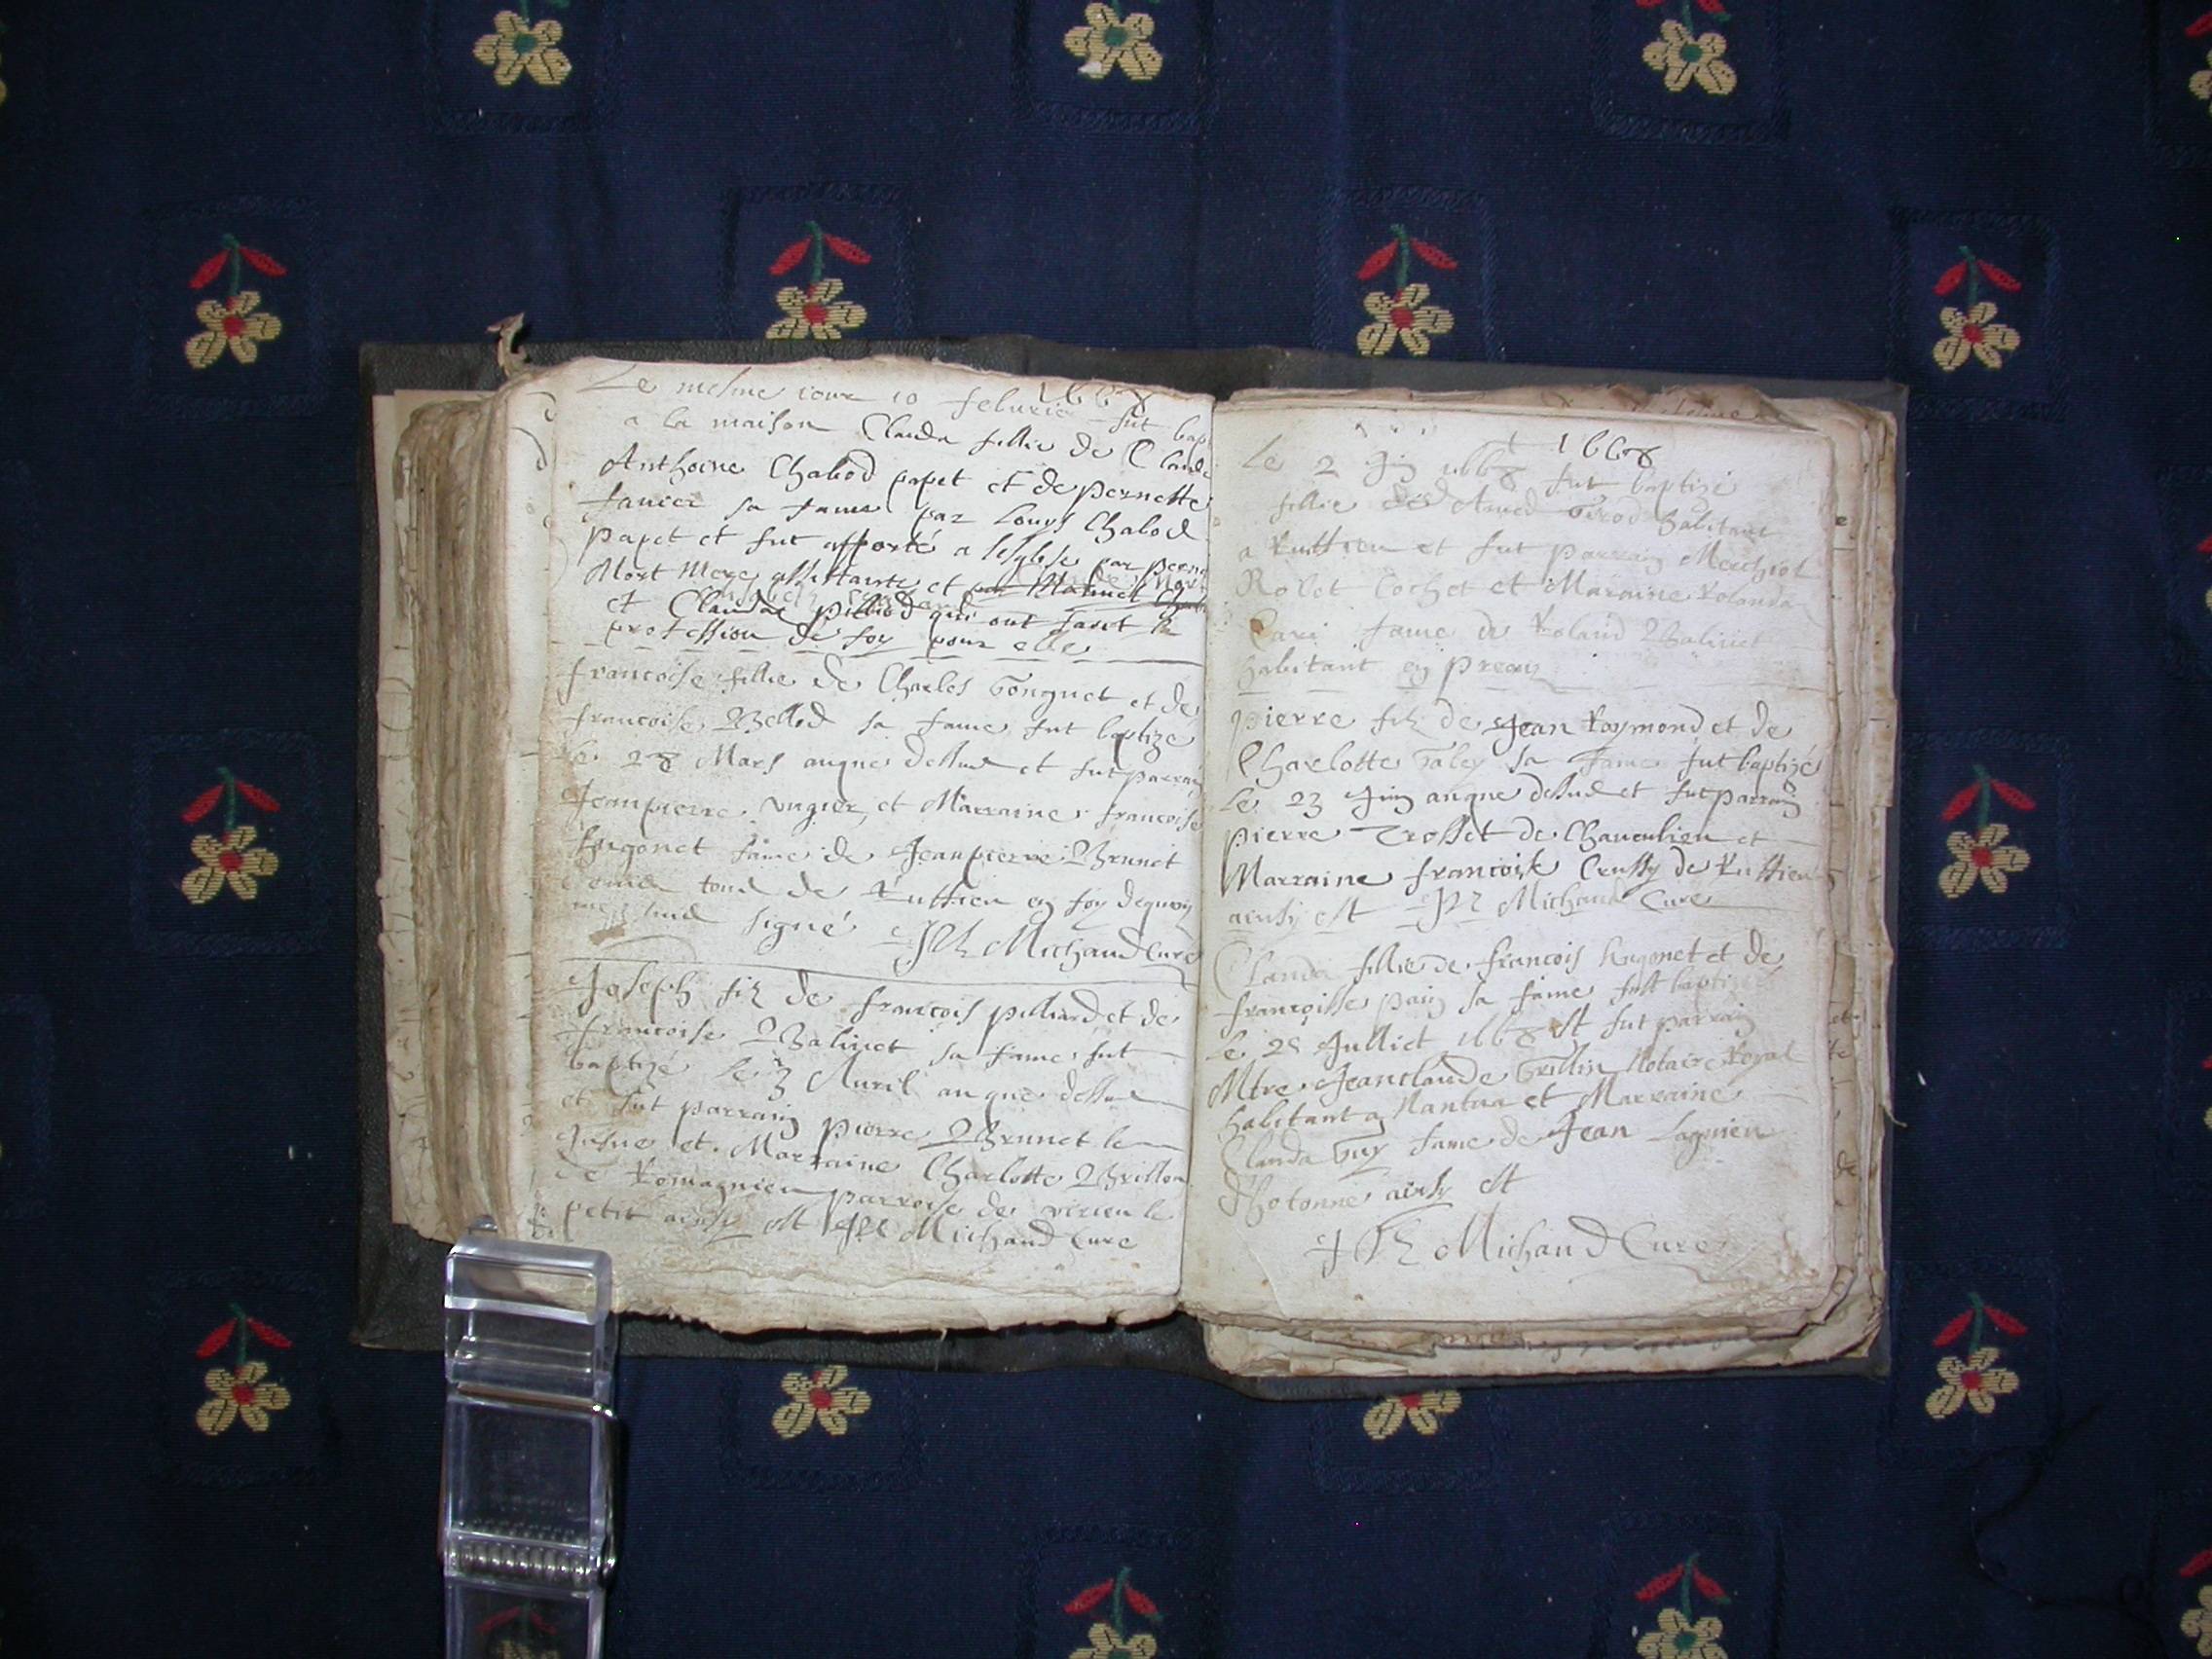 1668
Le mesme iour 10 feburier fut bap
a la maison Clauda fillie de Claude
Anthoine Chabod papet et de pernette
Janier sa fame par Louys Chabod
papet et fut apporté a lesglise par perne
Mort Mere assistante et
et Clauda pilliod qui ont faict la
profession de foy pour elle
francoise fillie de Charles Gonguet et de
francoise Bellod sa fame fut baptizé
le 28 Mars anque dessus et fut parrain
Jeanpierre Vugier et Marraine francoise
hugonet fame de Jeanpierre Brunet
tous de Ruffieu en foy dequoy
me suis signé Jph Michaud Cure
Joseph filz de francois pilliard et de
francoise Balinet sa fame fut
baptizé le 3 Auril anque dessus
et fut parrain pierre Brunet le
Jusne et Marraine Charlotte Brillon
de Romagnieu parroise de virieu le
petit ainsy est Jph Michaud Cure
1668
Le 2 Juin 1668 fut baptizé
fillie de Amed Girod habitant
a Ruffieu et fut parrain Merchiot
Rolet Cochet et Maraine Rolanda
Cari fame de Roland Balinet
habitant en preau
pierre filz de Jean Raymond et de
Charlotte Taley sa fame fut baptizé
le 23 Juin anque dessus et fut parrain
pierre Trosset de Chanculieu et
Marraine francoise Crussy de Ruffieu
ainsy est Jph Michaud Cure
Clauda fillie de francois hugonet et de
françoisse pain sa fame fust baptizé
le 25 Julliet 1668 et fut parrain
Mtre Jeanclaude Grillin Notaire Royal
habitant a Nantua et Marraine
Clauda Guy fame de Jean Lagnieu
dhotonne ainsy est
Jph Michaud Cure